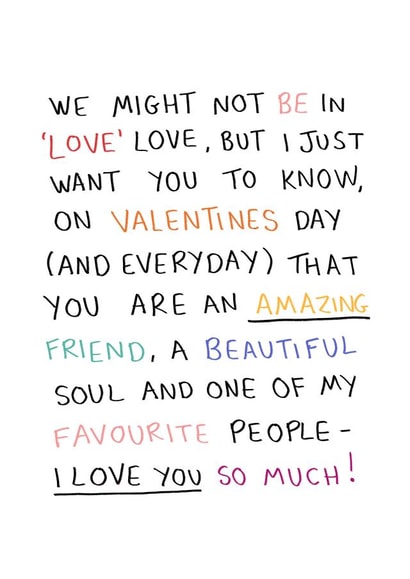 WE MIGHT NOT BE IN
'LOVE' LOVE, BUT I JUST
WANT YOU TO KNOW,
ON VALENTINES DAY
(AND EVERYDAY) THAT
YOU ARE AN AMAZING
FRIEND, A BEAUTIFUL
SOUL AND ONE OF MY
FAVOURITE PEOPLE -
I LOVE YOU SO MUCH!